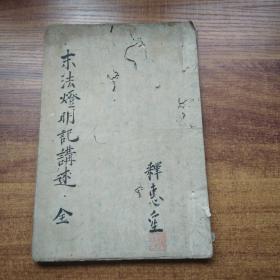 末法燈明記講述 全
釋惠